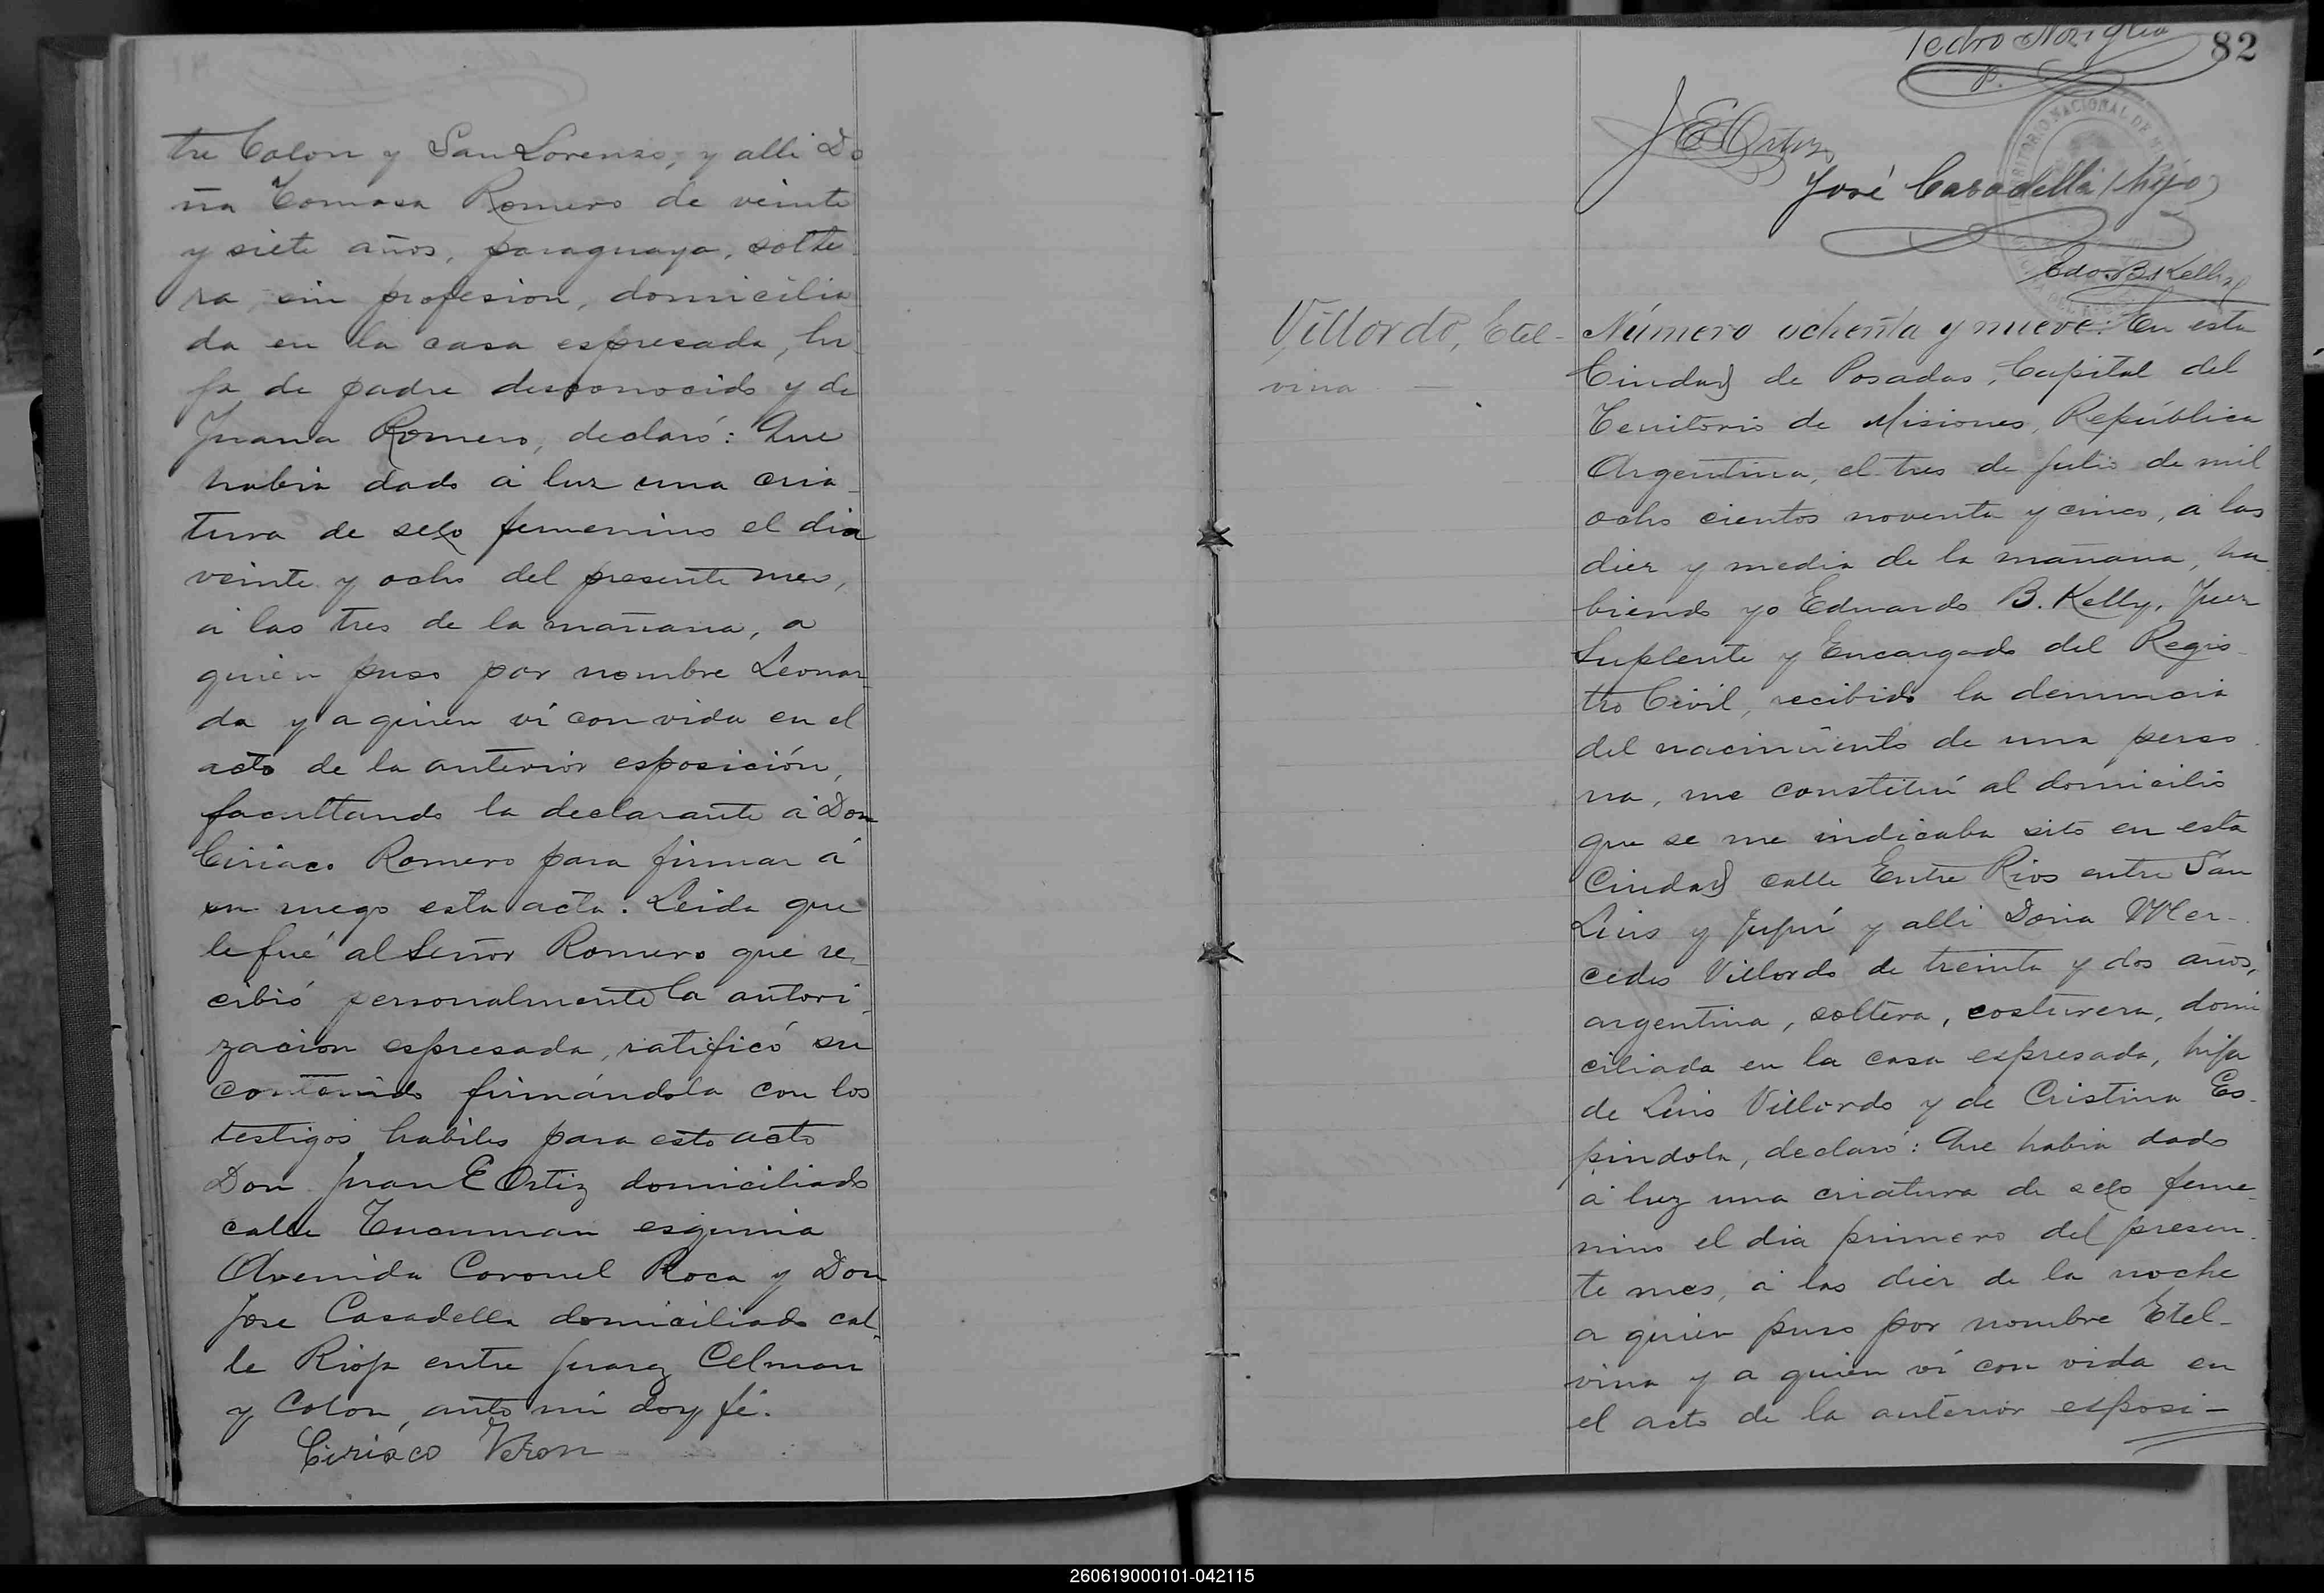 tre Colon y San Lorenzo, y alli Do
ña Tomasa Romero de veinte
y siete años, paraguaya, solte
ra, sin profesion, domicilia
da en la casa espresada, hi
ja de padre desconocido y de
Juana Romero, declaró: Que
habia dado á luz una cria-
tura de seso femenino el dia
veinte y ocho del presente mes,
á las tres de la mañana, a
quien puso por nombre Leonar
da y a quien ví con vida en el
acto de la anterior esposición,
facultando la declarante á Don
Ciriaco Romero para firmar á
su ruego esta acta. Leida que
le fué al Señor Romero que re-
cibió personalmente la autori-
zacion espresada, ratificó su
contenido firmándola con los
testigos habiles para este acto
Don Juan E Ortiz domiciliado
calle Tucuman esquina
Avenida Coronel Roca y Don
Jose Casadella domiciliado cal-
le Rioja entre Juarez Celman
y Colon, ante mí doy fé.
Ciriaco Veron
82
Pedro
p.
J E Ortiz
José Casadella (hijo)
Edo. B. Kelly
TERRITORIO NACIONAL DE
Villordo, Etel-
vina —
Número ochenta y nueve: En esta
Ciudad de Posadas, Capital del
Territorio de Misiones, República
Argentina, el tres de Julio de mil
ocho cientos noventa y cinco, á las
diez y media de la mañana, ha
biendo yo Eduardo B. Kelly, Juez
Suplente y Encargado del Regis-
tro Civil, recibido la denuncia
del nacimiento de una perso
na, me constituí al domicilio
que se me indicaba sito en esta
Ciudad calle Entre Rios entre San
Luis y Jujuí y alli Doña Mer-
cedes Villordo de treinta y dos años,
argentina, soltera, costurera, domi
ciliada en la casa espresada, hija
de Luis Villordo y de Cristina Es-
pindola, declaró: Que habia dado
á luz una criatura de seso feme-
nino el dia primero del presen-
te mes, á las diez de la noche
a quien puso por nombre Etel-
vina y a quien ví con vida en
el acto de la anterior esposi-
260619000101-042115